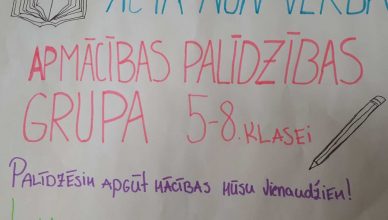 ACTA NON VERBA
APMĀCĪBAS PALĪDZĪBAS
GRUPA 5-8. KLASEI
PALĪDZĒSIM APGŪT MĀCĪBAS MŪSU VIENAUDŽIEM!